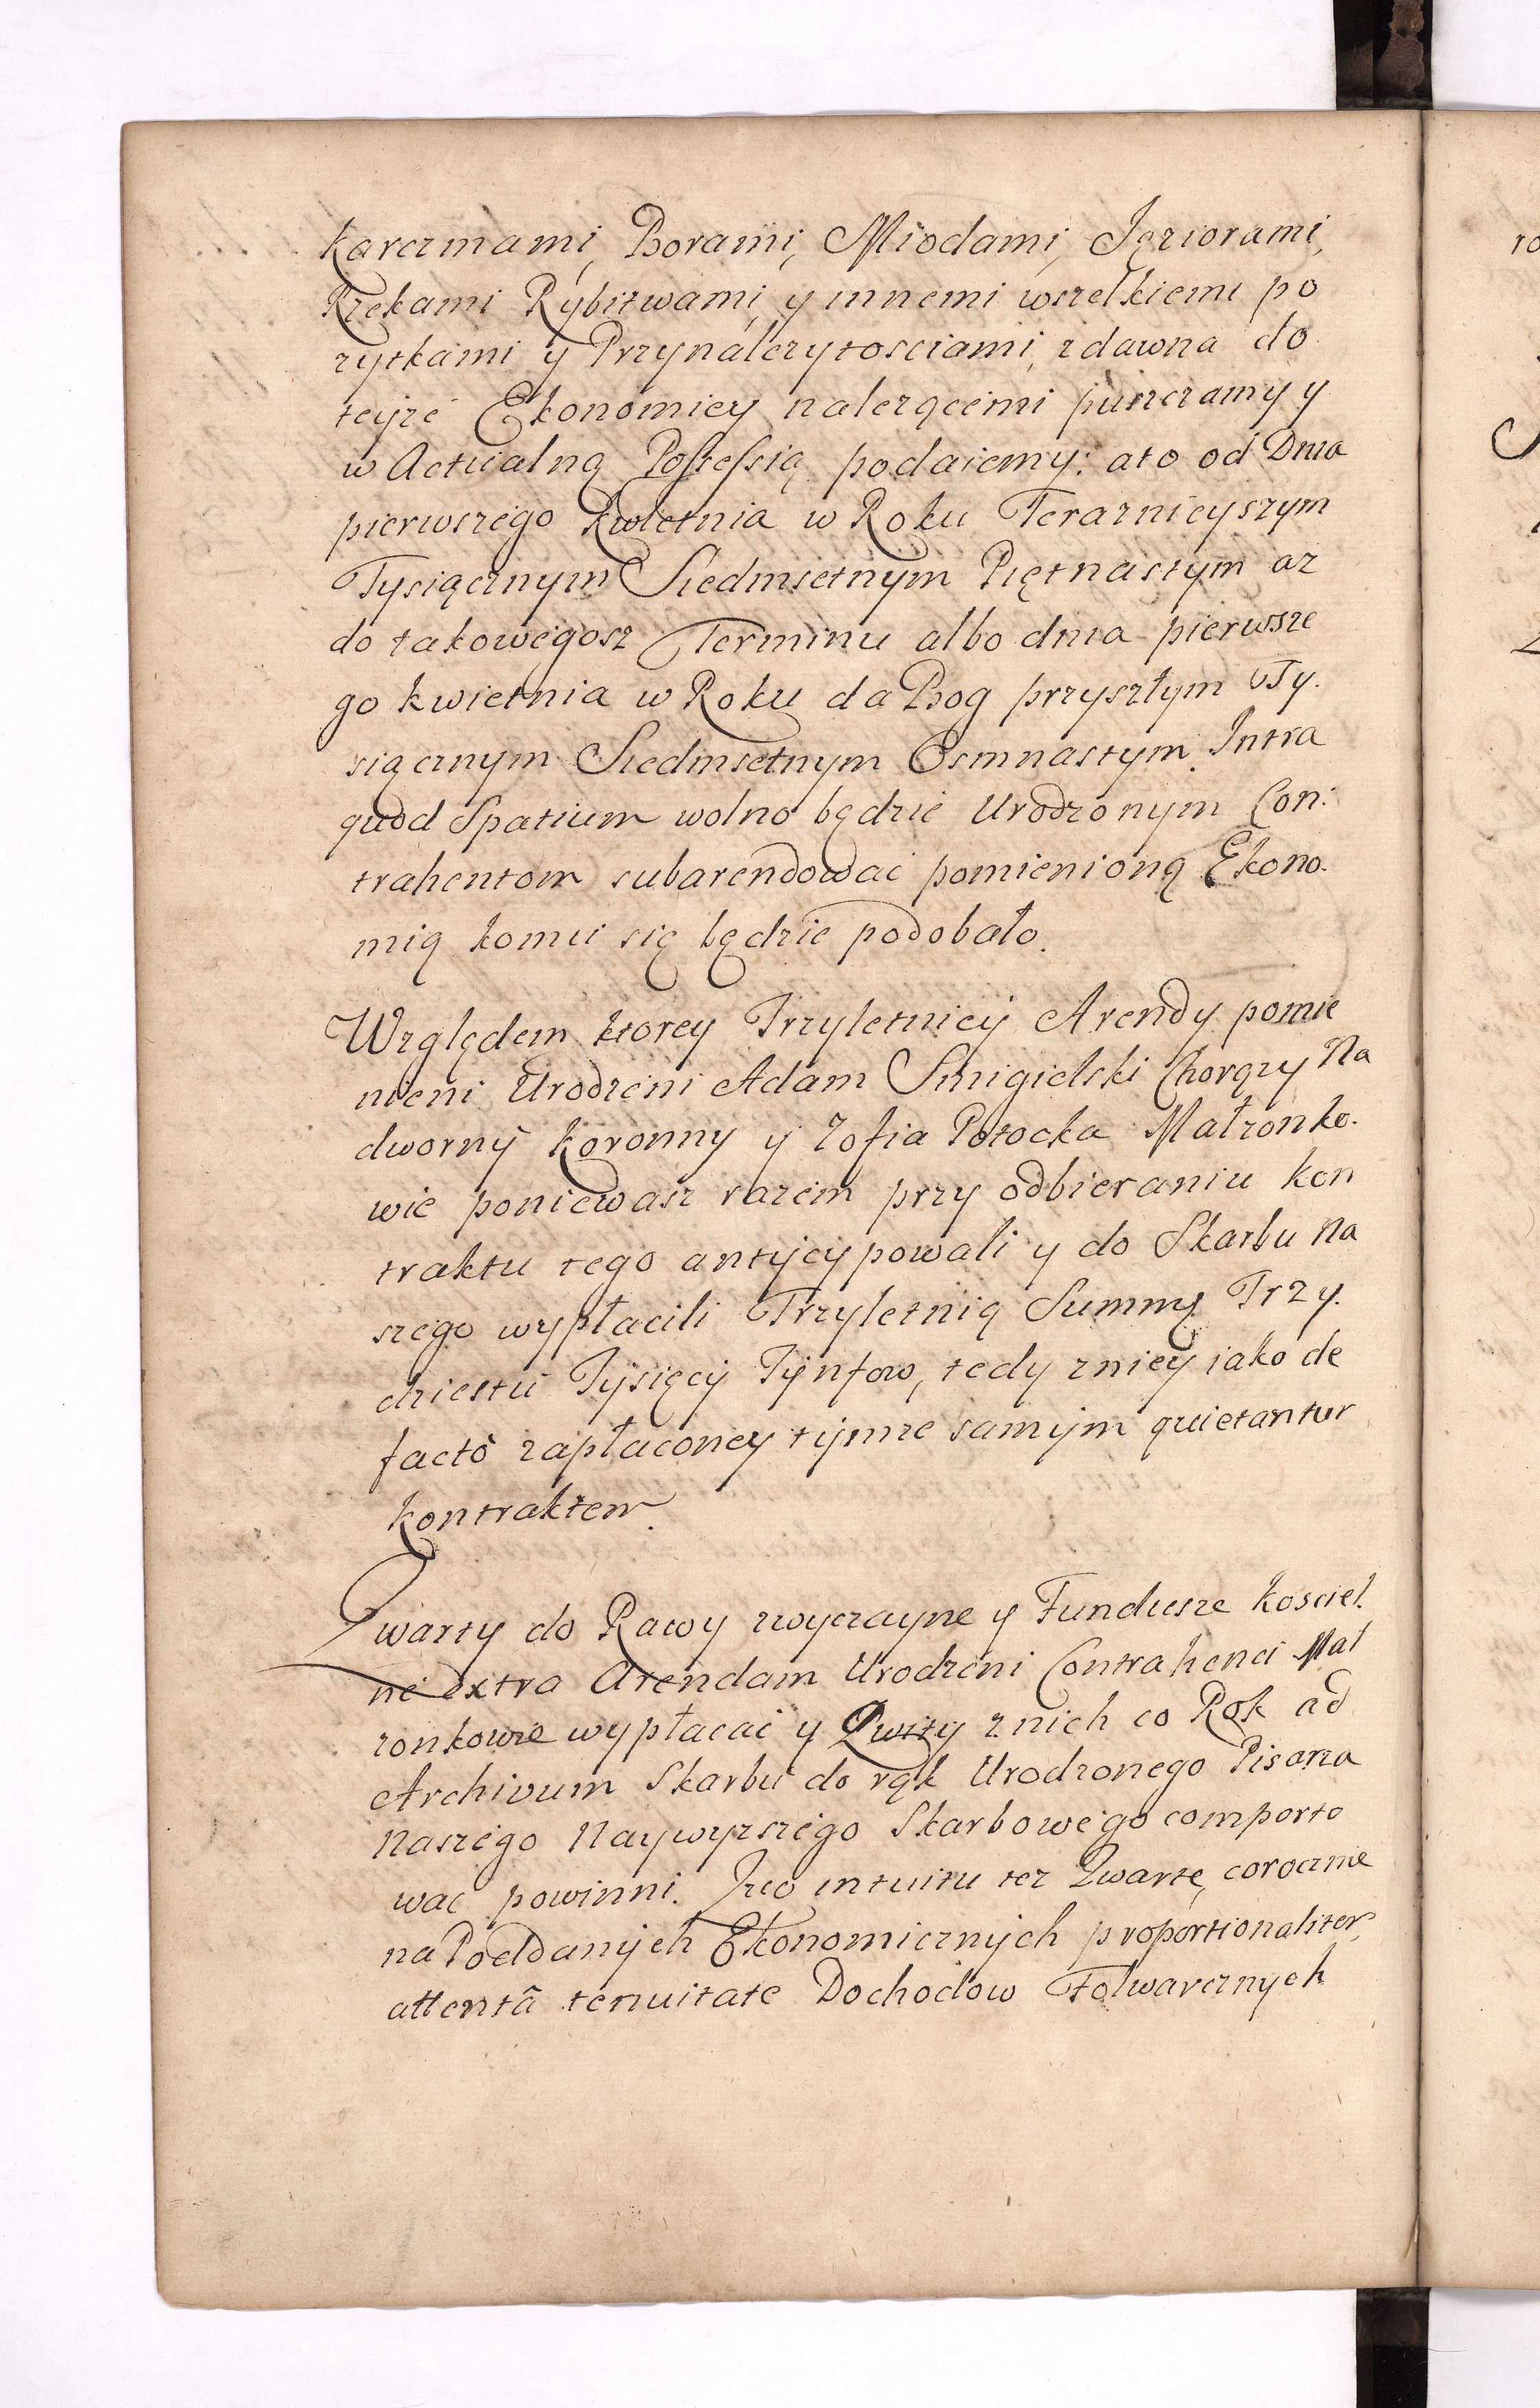 karczmami, Borami, Miodami, Jęziorami,
Rzekami Rybitwami, y innemi wszelkiemi po
zytkami y Przynalezytosciami, zdawna do
teyze Ekonomiey nalezącemi puszczamy y
w Actualną Possessią podaiemy: a to od Dnia
pierwszego Kwietnia w Roku Teraznieyszym
Tysiącznym Siedmsetnym Piętnastym az
do takowegosz Terminu albo dnia pierwsze
go kwietnia w Roku da Bog przyszłym Ty.
siącznym Siedmsetnym Osmnastym. Intra
quod Spatium wolno będzie Urodzonym Con:
trahentom subarendowac pomienioną Ekono.
mią komu się będzie podobało.
Względem ktorey Trzyletniey Arendy pomie
nieni Urodzeni Adam Smigielski Chorązy Na
dworny koronny y Zofia Potocka Małzonko.
wie poniewasz razem przy odbieraniu kon
traktu tego antycypowali y do Skarbu Na
szego wypłacili Trzyletnią Summę Trzy.
dziestu Tysięcy Tynfow, tedy z niey iako de
facto zapłaconey tymze samym quietantur
kontraktem.
Qwarty do Rawy zwyczayne y Fundusze kosciel.
ne extra Arendam Urodzeni Contrahenci Mał
zonkowie wypłacac y Qwity z nich co Rok ad
Archivum Skarbu do rąk Urodzonego Pisarza
Naszego Naywyzszego Skarbowego comporto
wac powinni. Quo intuitu tez Qwartę, corocznie
na Poddanych Ekonomicznych proportionaliter,
attentâ tenuitate Dochodow Folwarcznych